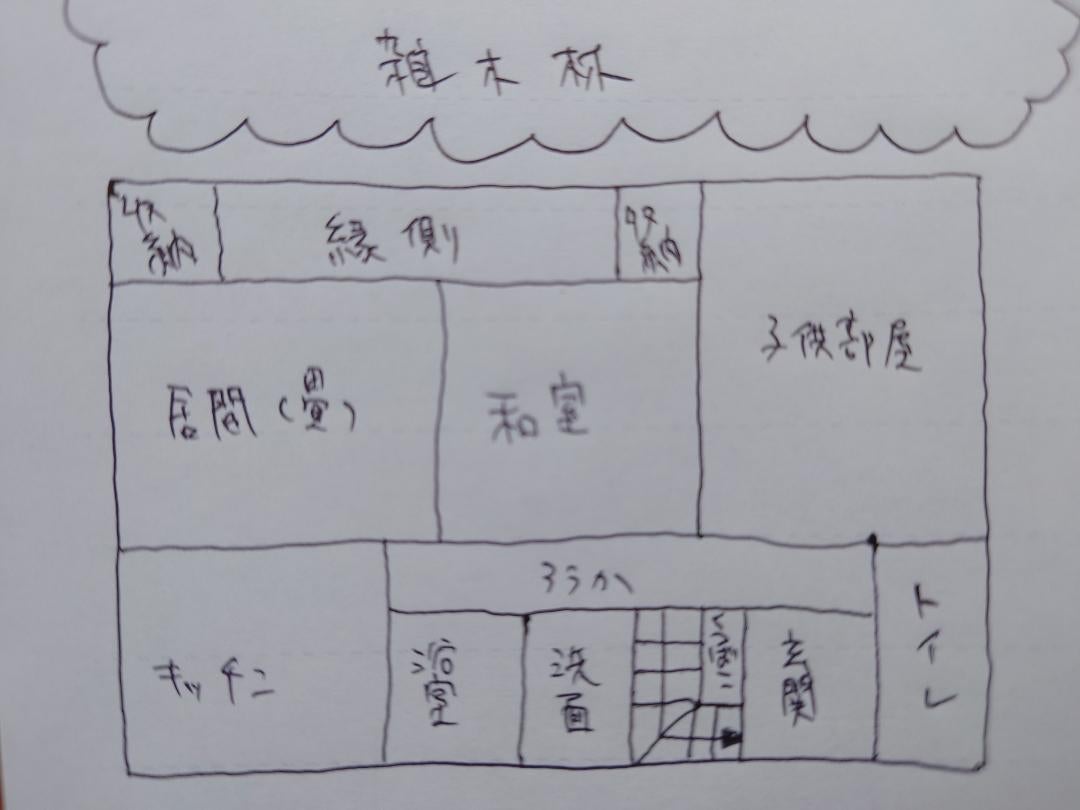 雑木林
収納
縁側
収納
子供部屋
居間(畳)
和室
ろうか
トイレ
キッチン
浴室
洗面
玄関